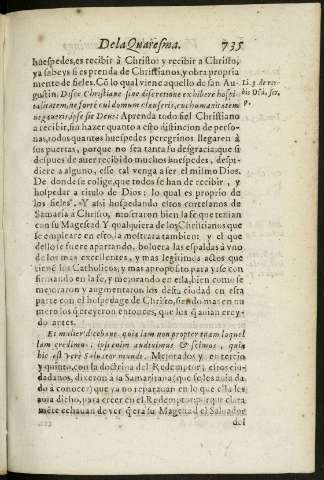 De la Quaresma. 735
huespedes, es recibir à Christo: y recibir a Christo,
ya sabeys si es prenda de Christianos, y obra propria
mente de fieles. Cõ lo qual viene aquello de san Au-
gustin. Disce Christiane sine discretione exhibere hospi-
talitatem, ne fortè cui domum clauseris, cui humanitatem
negaueris, ipse sit Deus: Aprenda todo fiel Christiano
a recibir, sin hazer quanto a esto distincion de perso-
nas, todos quantos huespedes peregrinos llegaren à
sus puertas, porque no sea tanta su desgracia: que si
despues de auer recibido muchos huespedes, despi-
diere a alguno, esse tal venga a ser el mismo Dios.
De donde se colige, que todos se han de recibir, y
hospedar a titulo de Dios: lo qual es proprio de
los fieles. Y assi hospedando estos cortesanos de
Samaria à Christo, mostraron bien la fe que tenian
con su Magestad Y qualquiera de los Christianos que
se empleare en esto, la mostrara tambien: y el que
dello se fuere apartando, boluera las espaldas à vno
de los mas excellentes, y mas legitimos actos que
tiene los Catholicos, y mas aproposito para yrse con
firmando en la fe, y mejorando en ella, bien como se
mejoraron y augmentaron los desta ciudad en esta
parte con el hospedage de Christo, siendo mas en nu
mero los q̃ creyeron entonces, que los q̃ auian crey-
do antes.
Et mulieri dicebant quia iam non propter tuam loquel
lam credimus: ipsi enim audiuimus & scimus, quia
hic est verè Saluator mundi. Mejorados y en tercio
y quinto, con la doctrina del Redemptor; estos ciu-
dadanos, dixeron à la Samaritana (que se les auia da-
do à conocer) que ya no reparauan en lo que ella les
auia dicho, para creer en el Redemptor: porque clara
mẽte echauan de ver q̃ era su Magestad el Saluador
del